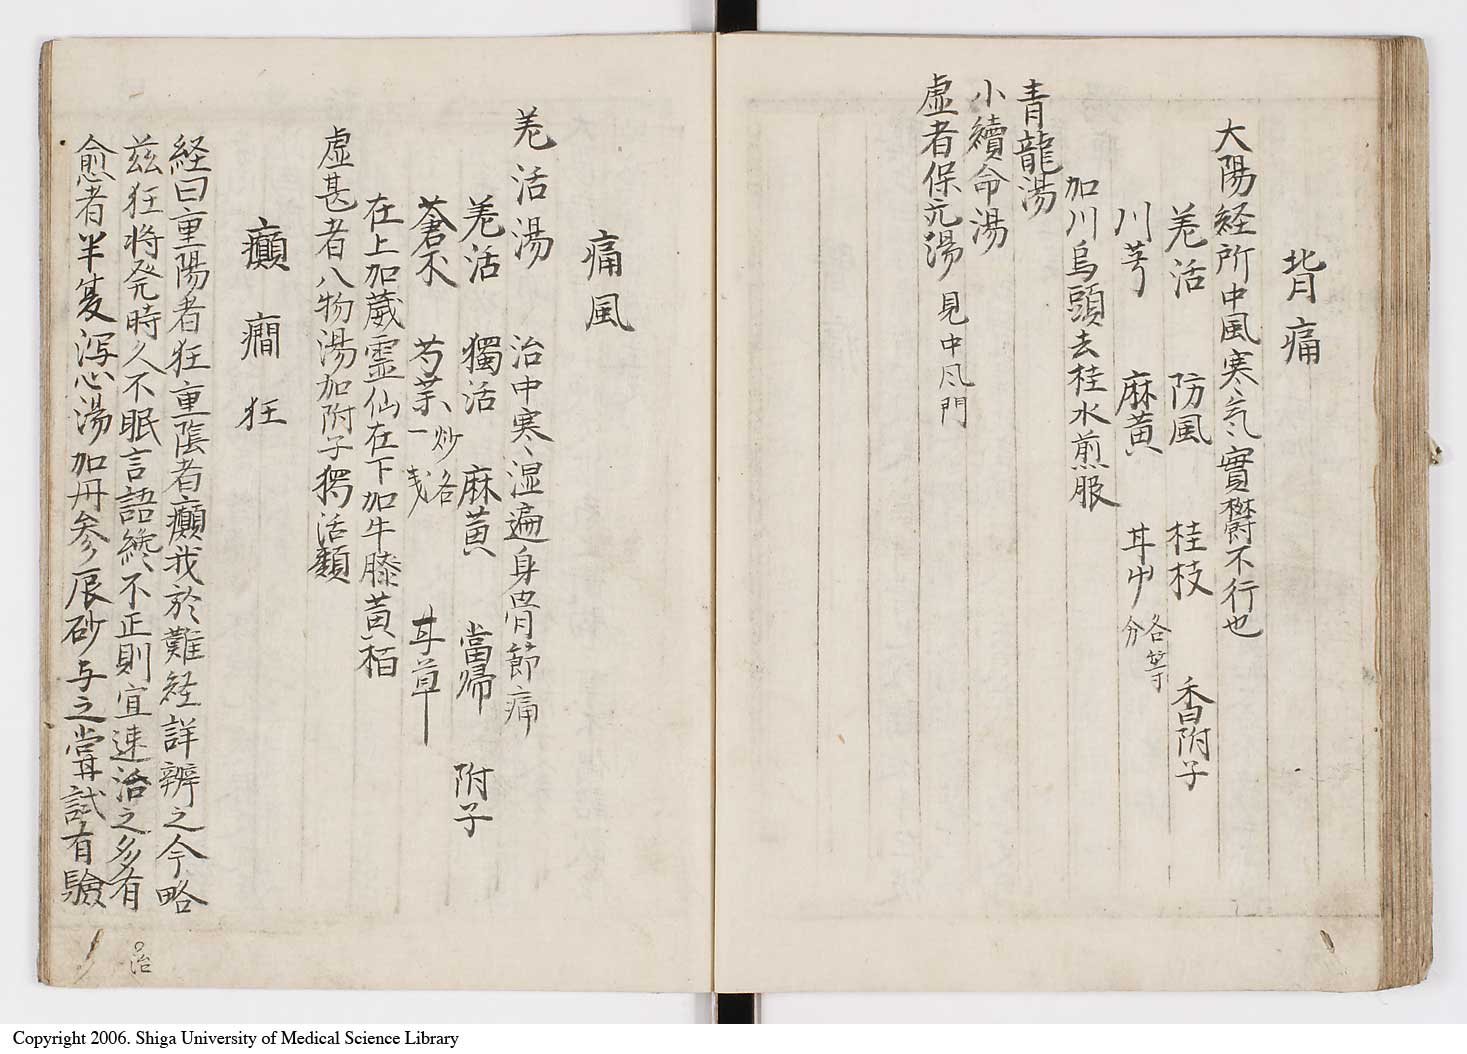 背痛
大陽経所中風寒氣實欝不行也
羌活 防風 桂枝 香附子
川芎 麻黄 甘中 各等分
加川烏頭去桂水煎服
青龍湯
小續命湯
虚者保元湯 見中風門
痛風
羌活湯 治中寒湿遍身骨節痛
羌活 獨活 麻黄 當帰 附子
蒼朮 芍薬 炒各一戔 甘草
在上加葳霊仙在下加牛膝黄栢
虚甚者八物湯加附子獨活類
癲癇狂
経曰重陽者狂重陰者癲我於難経詳辨之今略
茲狂将発時久不眠言語終不正則宜速治之多有
愈者半夏瀉心湯加丹参辰砂与之甞試有驗
治
Copyright 2006. Shiga University of Medical Science Library